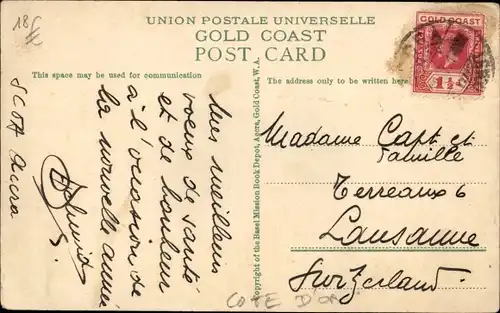 18 £
UNION POSTALE UNIVERSELLE
GOLD COAST
POST CARD
This space may be used for communication
The address only to be written here
GOLD COAST
1½
Mes meilleurs
voeux de santé
et de bonheur
à l'occasion de
la nouvelle année
SCOA Accra
Copyright of the Basel Mission Book Depot, Accra, Gold Coast, W.A.
Madame Capt et
famille
Terreaux 6
Lausanne
Switzerland
COTE D'OR